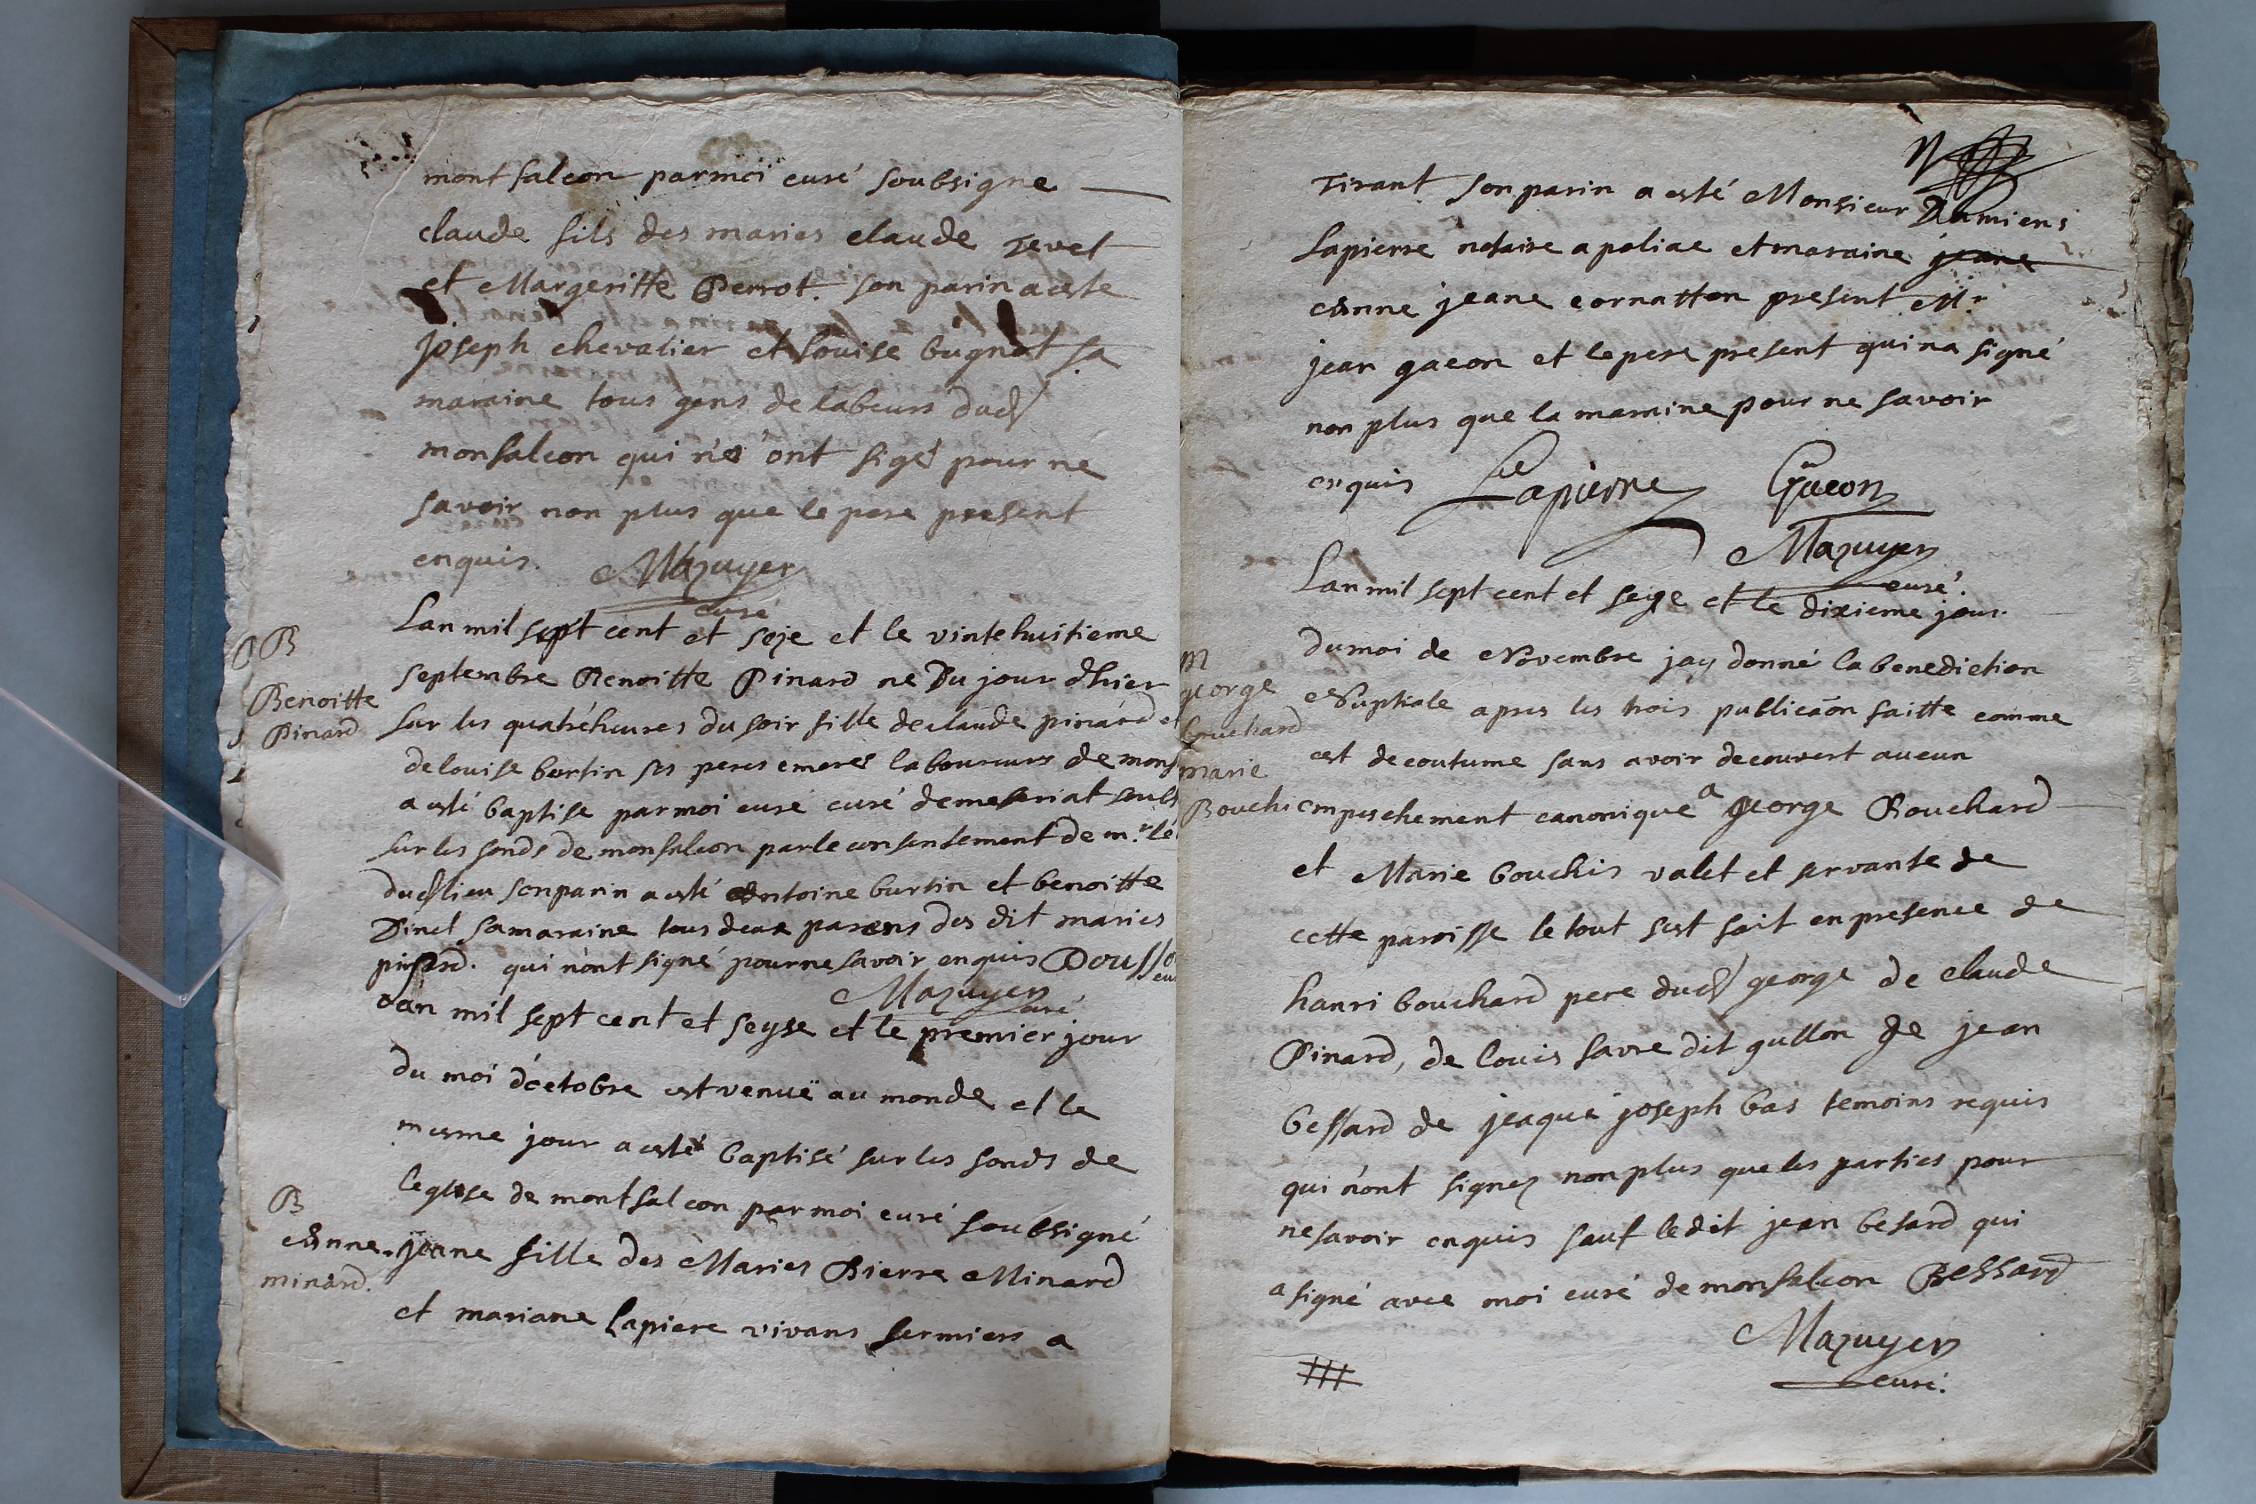 montfalcon par moi curé soubsigne
claude fils des maries claude Tevet
et Margeritte Perrot. son parin a este
joseph chevalier et louise bugnot sa
maraine tous gens de labeurs dud
monfalcon qui n'ont sigé pour ne
savoir non plus que le pere present
enquis. Mazuyer
curé
Lan mil sept cent et seze et le vintehuitieme
B
septembre Benoitte Pinard ne Du jour d'hier
Benoitte
Pinard
sur les quatre heures du soir fille de claude pinard et
de louise burtin ses peres e meres laboureurs de monf
a esté baptise par moi cure curé de meseriat soubs
sur les fonds de monfalcon par le consentement de mr. le
dud lieu son parin a esté Antoine burtin et benoitte
Pinet sa maraine tous deux parens des dit maries
pinard. qui n'ont signé pour ne savoir enquis Dousso
Mazuyer
curé
Lan mil sept cent et seyse et le premier jour
du moi d'octobre est venuë au monde et le
mesme jour a esté baptisé sur les fonds de
l'eglise de montfalcon par moi curé soubsigné
B
Anne.
minard.
jeane fille des Maries Pierre Minard
et mariane Lapiere vivans fermiers a
Tirant son parin a esté Monsieur Damiens
Lapierre notaire a poliac et maraine jeane
Anne jeane cornatton present Mr
jean gacon et le pere present qui na signé
non plus que la maraine pour ne savoir
enquis Lapierre Gacon
Mazuyer
curé.
Lan mil sept cent et seize et le dixieme jour
du moi de Novembre jay donné la benediction
m
george
bouchard
marie
Bouchi
Nuptiale apres les trois publicaon faitte comme
est de coutume sans avoir decouvert aucun
empeschement canonique a george Bouchard
et Marie bouchis valet et servante de
cette paroisse le tout sest fait en presence de
hanri bouchard pere dud george de claude
Pinard, de louis favre dit gullon de jean
bessard de jeaque joseph bas temoins requis
qui n'ont signez non plus que les parties pour
ne savoir enquis sauf le dit jean besard qui
a signé avec moi curé de monfalcon Bessard
Mazuyer
curé.